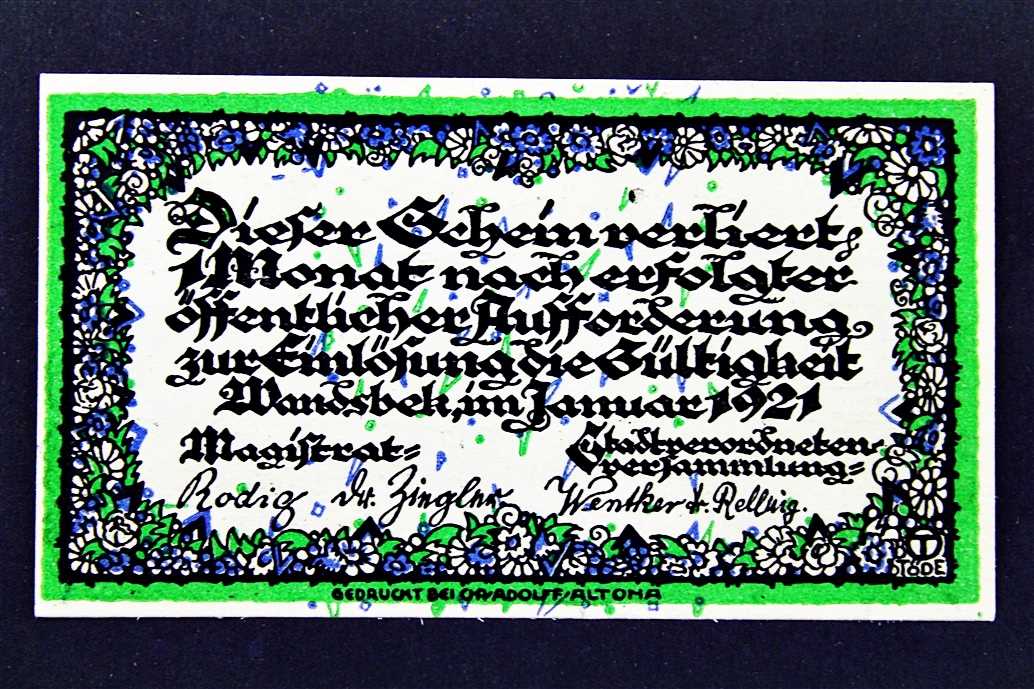 Dieser Schein verliert
1 Monat nach erfolgter
öffentlicher Aufforderung
zur Einlösung die Gültigkeit
Wandsbek, im Januar 1921
Magistrat=
Stadtverordneten-
versammlung=
Rodig Dr. Ziegler Wentker
TÖDE
GEDRUCKT BEI CHR/ADOLFF/ALTONA